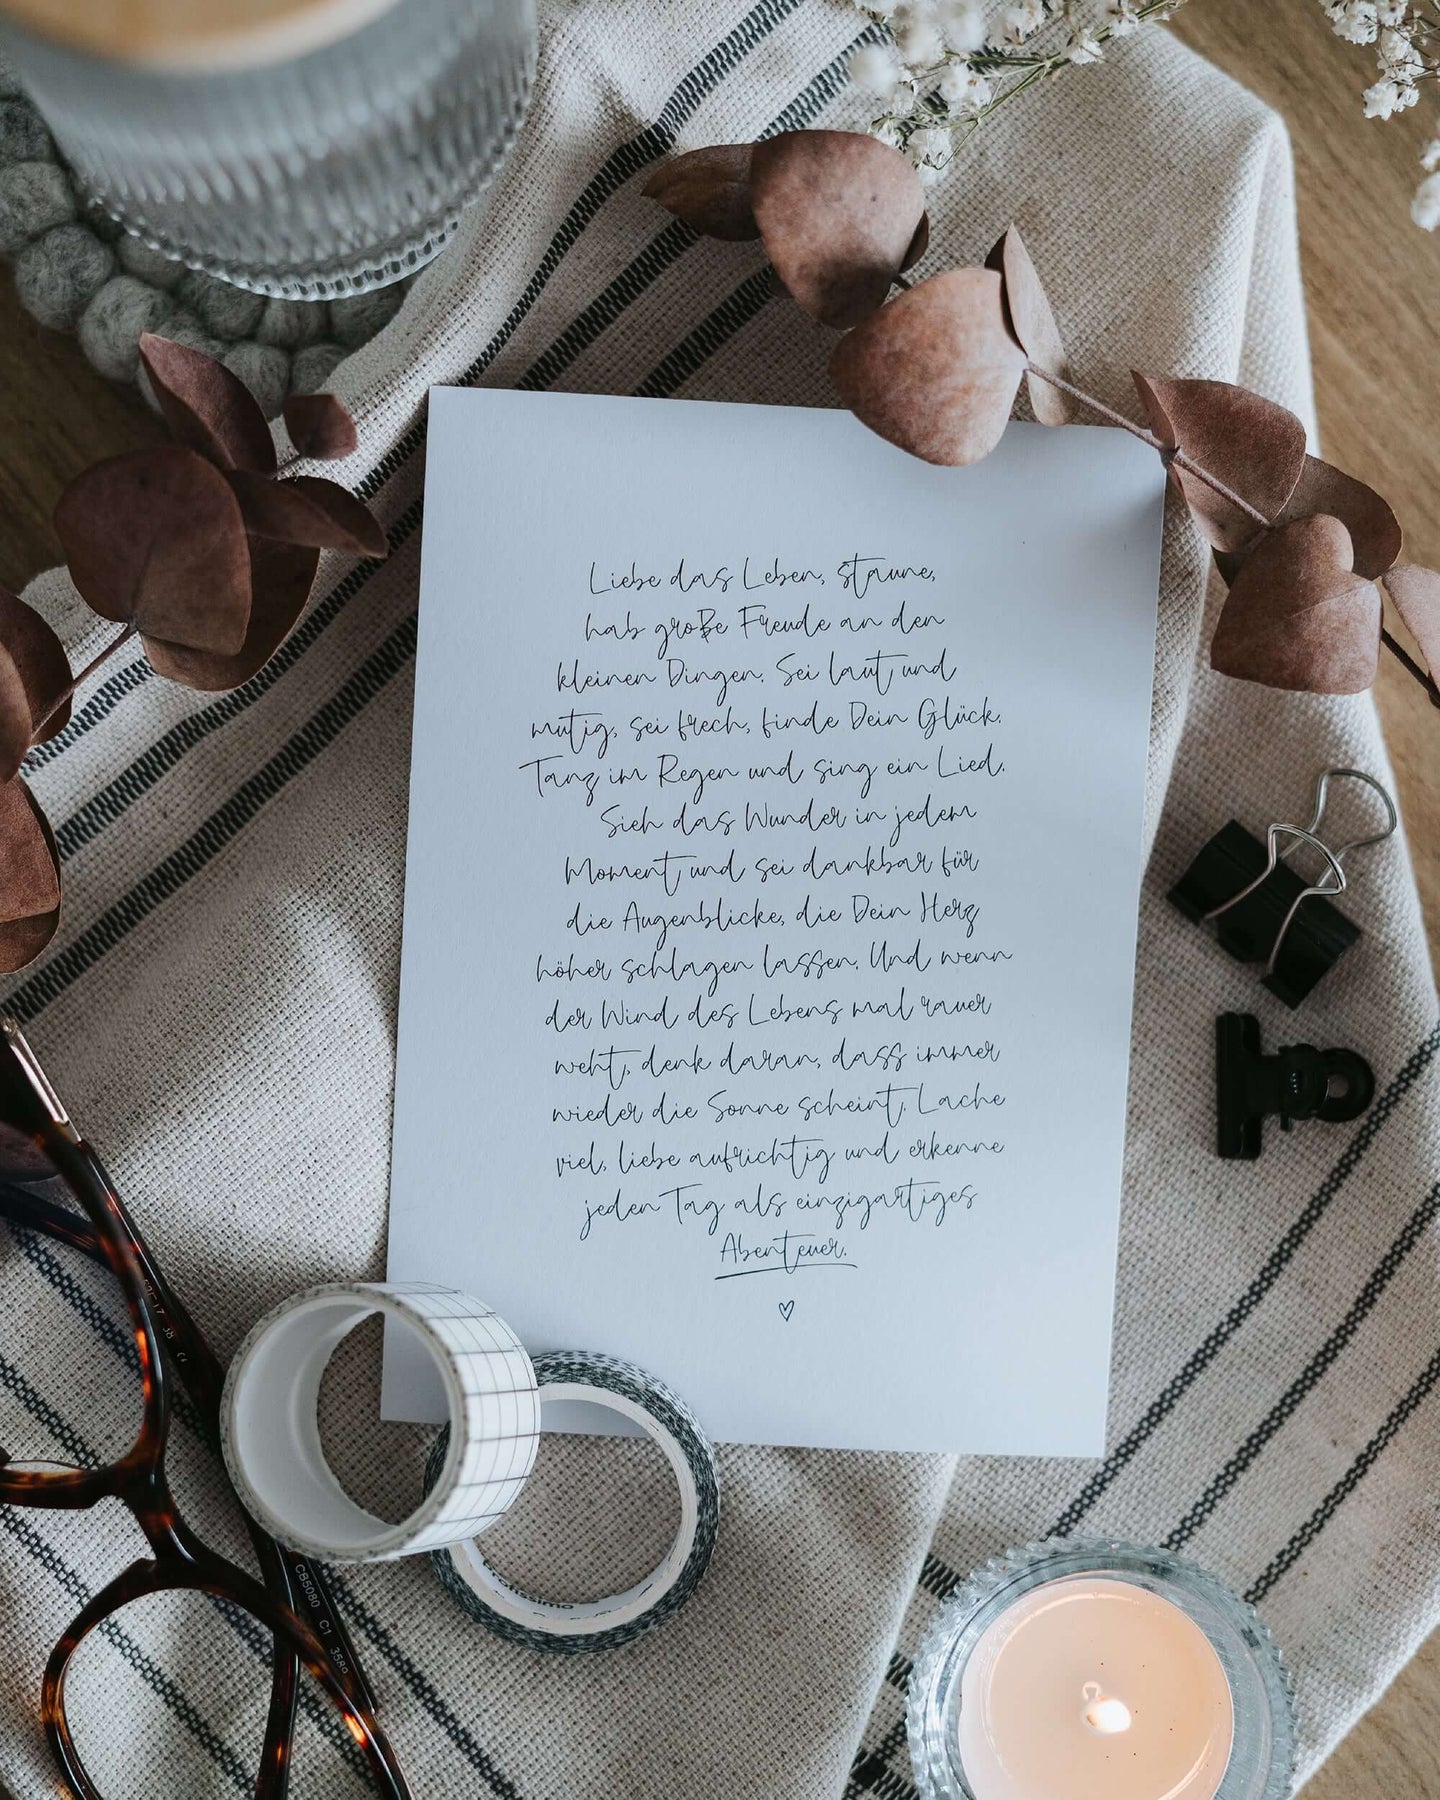 Liebe das Leben, staune,
hab große Freude an den
kleinen Dingen. Sei laut und
mutig, sei frech, finde Dein Glück.
Tanz im Regen und sing ein Lied.
Sieh das Wunder in jedem
Moment und sei dankbar für
die Augenblicke, die Dein Herz
höher schlagen lassen. Und wenn
der Wind des Lebens mal rauer
weht, denk daran, dass immer
wieder die Sonne scheint. Lache
viel, liebe aufrichtig und erkenne
jeden Tag als einzigartiges
Abenteuer.
CB5080 C1 3589